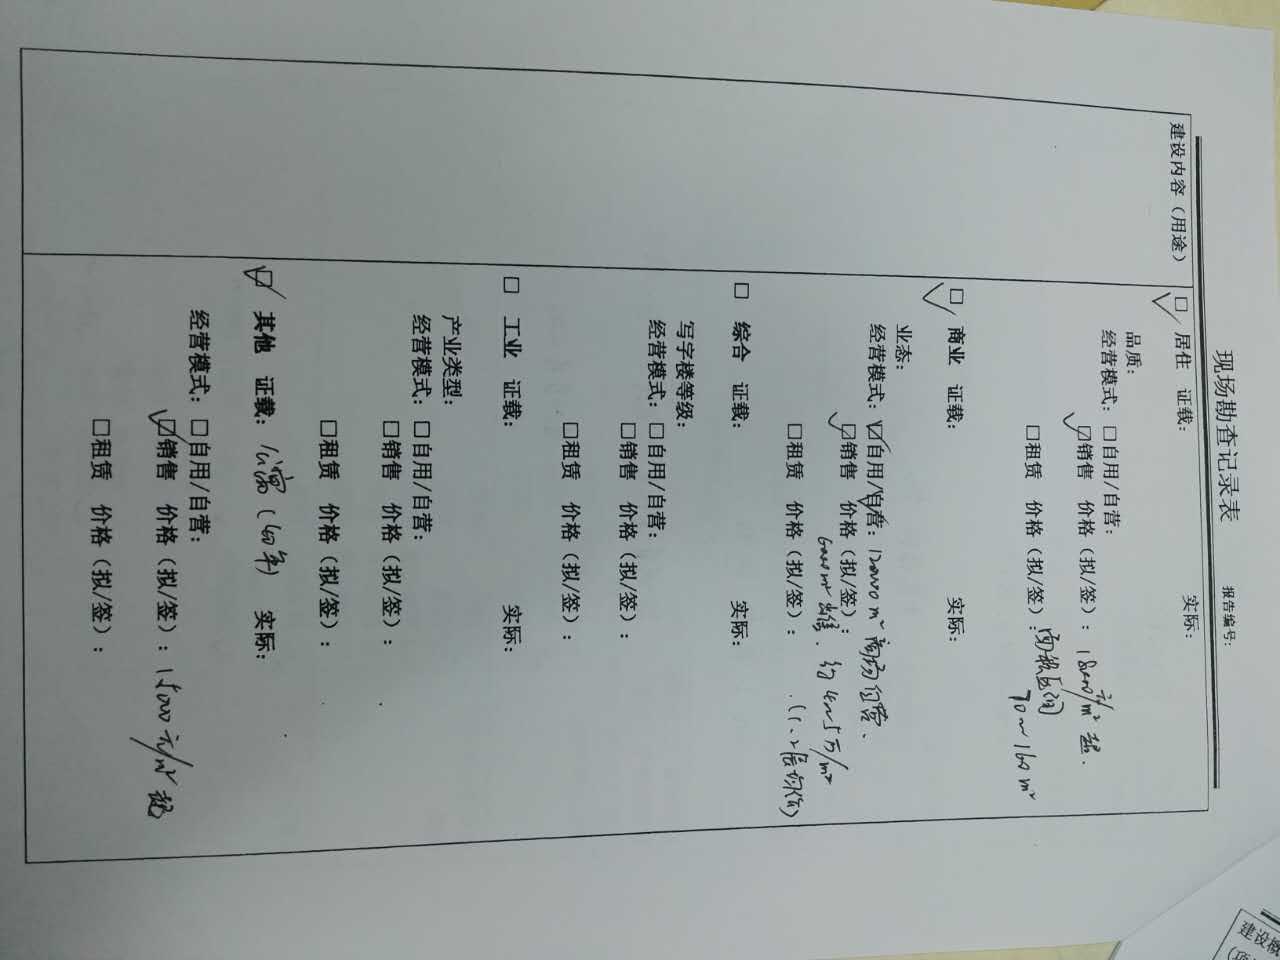 现场勘查记录表
报告编号:
建设内容(用途)
□ 居住 证载: 实际:
品质:
经营模式: □自用/自营:
☑销售 价格(拟/签): 18000元/m² 起.
□租赁 价格(拟/签): 面积区间
70~160m²
□ 商业 证载: 实际:
业态:
经营模式: ☑自用/自营: 12000m² 商场自营、
☑销售 价格(拟/签):
6000m² 出售、约4~5万/m²
□租赁 价格(拟/签): (1、2层均价)
□ 综合 证载: 实际:
写字楼等级:
经营模式: □自用/自营:
□销售 价格(拟/签):
□租赁 价格(拟/签):
□ 工业 证载: 实际:
产业类型:
经营模式: □自用/自营:
□销售 价格(拟/签):
□租赁 价格(拟/签):
☑ 其他 证载: 公寓(40年) 实际:
经营模式: □自用/自营:
☑销售 价格(拟/签): 15000元/m² 起
□租赁 价格(拟/签):